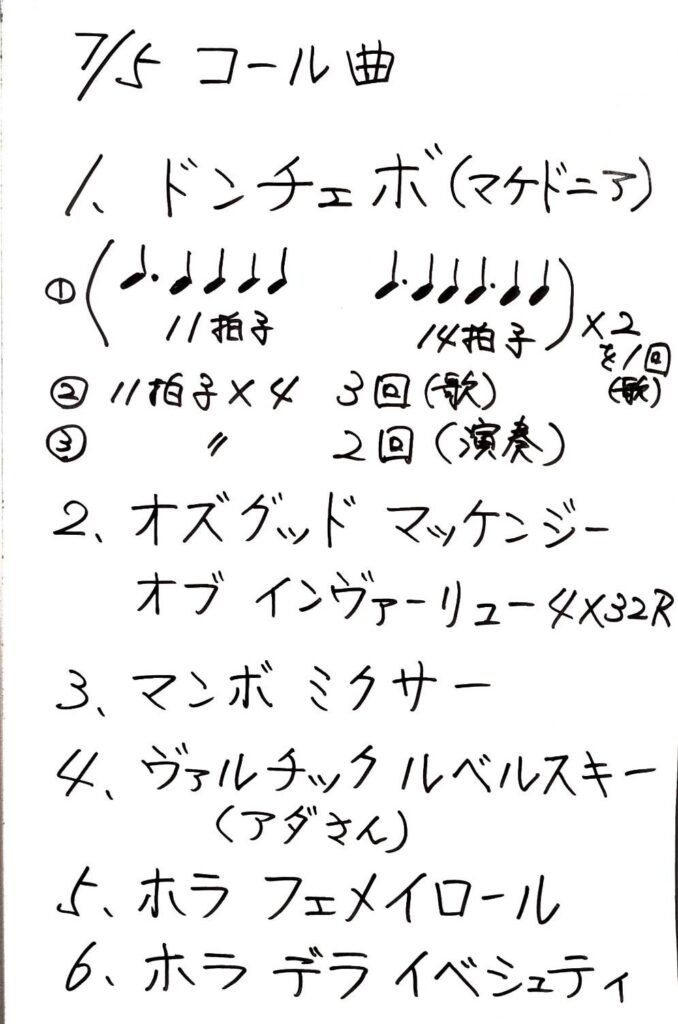 7/5 コール曲
1、ドンチェボ(マケドニア)
① ( ♩. ♩ ♩ ♩ ♩  ♩. ♩ ♩ ♩. ♩ ♩ ) ×2
11拍子 14拍子 を1回
② 11拍子×4 3回(歌) (歌)
③ 〃 2回(演奏)
2、オズグッド マッケンジー
オブ インヴァーリュー 4×32R
3、マンボ ミクサー
4、ヴァルチック ルベルスキー
(アダさん)
5、ホラ フェメイロール
6、ホラ デラ イベシェティ